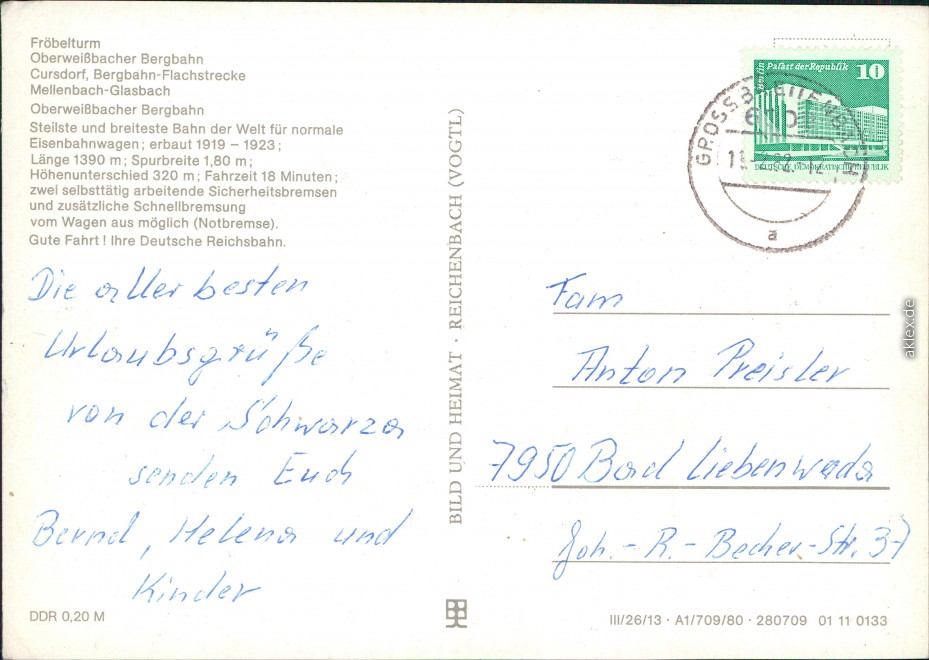 Fröbelturm
Oberweißbacher Bergbahn
Cursdorf, Bergbahn-Flachstrecke
Mellenbach-Glasbach
Oberweißbacher Bergbahn
Steilste und breiteste Bahn der Welt für normale
Eisenbahnwagen; erbaut 1919 – 1923;
Länge 1390 m; Spurbreite 1,80 m;
Höhenunterschied 320 m; Fahrzeit 18 Minuten;
zwei selbsttätig arbeitende Sicherheitsbremsen
und zusätzliche Schnellbremsung
vom Wagen aus möglich (Notbremse).
Gute Fahrt! Ihre Deutsche Reichsbahn.
Die aller besten
Urlaubsgrüße
von der Schwarza
senden Euch
Bernd, Helena und
Kinder
DDR 0,20 M
BILD UND HEIMAT · REICHENBACH (VOGTL)
Berlin Palast der Republik 10
DEUTSCHE DEMOKRATISCHE REPUBLIK
GROSSBREITENBACH
a
Fam
Anton Preisler
7950 Bad Liebenwerda
Joh.-R.-Becher-Str. 37
III/26/13 · A1/709/80 · 280709 01 11 0133
aklex.de